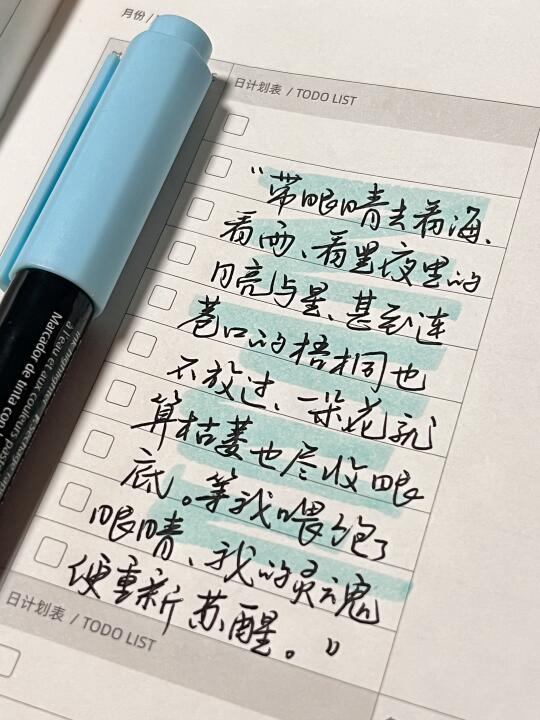 月份 /
日计划表 / TODO LIST
“带眼睛去看海、
看雨、看黑夜里的
月亮与星、甚至连
巷口的梧桐也
不放过、一朵花就
算枯萎也尽收眼
底。等我喂饱了
眼睛、我的灵魂
便重新苏醒。”
日计划表 / TODO LIST
ink highlighter
à l'eau et aux couleurs
Marcador de tinta con